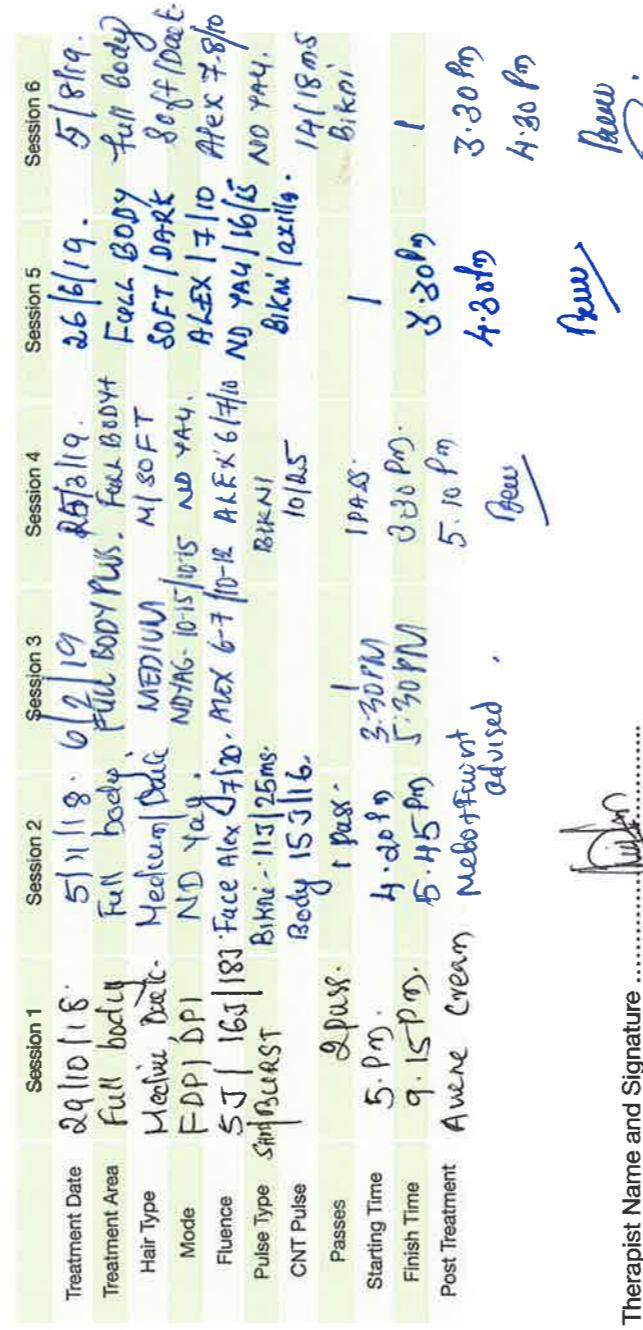 Session 1 Session 2 Session 3 Session 4 Session 5 Session 6
Treatment Date 29/10/18. 5/11/18. 6/2/19 25/3/19. 26/6/19. 5/8/19.
Treatment Area Full body Full body. FULL BODY PLUS. FULL BODY+ FULL BODY full body
Hair Type Medium/Dark MEDIUM M/SOFT SOFT/DARK Soft/Dark.
Mode FDP/DPI ND Yag. NDYAG-10-15/10-15 ND YAG. ALEX/7/10 Alex 7-8/10
Fluence 5J/ 16J/18J. Face Alex 7/20. ALEX 6-7/10-12 ALEX 6/7/10 ND YAG/16/15 ND YAG.
Pulse Type SHR/BURST Bikni-11J/25ms. BIKNI Bikni/axilla. 14/18ms
CNT Pulse Body 15J/16. 10/25 Bikni
Passes 2 pass. 1 pass. 1 1 PASS. 1 1
Starting Time 5.Pm. 4.20 Pm 3.30PM 3.30 Pm. 3.30Pm 3.30 Pm
Finish Time 9.15Pm. 5.45 Pm 5.30PM 5.10 Pm 4.30Pm 4.30 Pm
Post Treatment Avene Cream advised.
Therapist Name and Signature